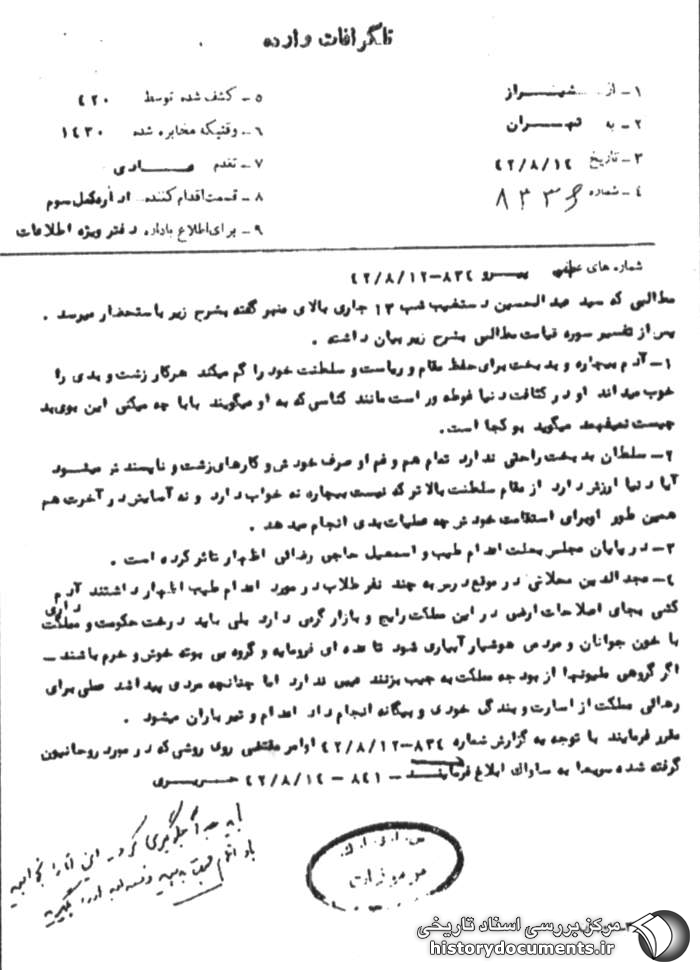 تلگرافات وارده
۱ـ از شیراز
۲ـ به تهران
۳ـ تاریخ ۴۲/۸/۱۴
۴ـ شماره ۸۳۳۶
۵ـ کشف شده توسط ۴۲۰
۶ـ وقتیکه مخابره شده ۱۴۳۰
۷ـ تقدم عادی
۸ـ قسمت اقدام کننده اداره کل سوم
۹ـ برای اطلاع باداره دفتر ویژه اطلاعات
شماره های عطفی پیرو ۸۳۴-۴۲/۸/۱۲
مطالبی که سید عبدالحسین دستغیب شب ۱۳ جاری بالای منبر گفته بشرح زیر باستحضار میرسد .
پس از تفسیر سوره قیامت مطالبی بشرح زیر بیان داشته .
۱ـ آدم بیچاره و بدبخت برای حفظ مقام و ریاست و سلطنت خود را گم میکند هرکار زشت و بدی را
خوب میداند او در کثافت دنیا غوطه ور است مانند کناسی که به او میگویند بابا چه میکنی این بوی بد
چیست نمیفهمد میگوید بو کجا است.
۲ـ سلطان بدبخت راحتی ندارد تمام هم و غم او صرف خودش و کارهای زشت و ناپسند تر میشود
آیا دنیا ارزش دارد از مقام سلطنت بالاتر که نیست بیچاره نه خواب دارد و نه آسایش در آخرت هم
همین طور او برای استقامت خودش چه عملیات بدی انجام میدهد .
۳ـ در پایان مجلس بعلت اعدام طیب و اسمعیل حاجی رضائی اظهار تاثر کرده است .
۴ـ مجدالدین محلاتی در موقع درس به چند نفر طلاب در مورد اعدام طیب اظهار داشتند آدم
کشی بجای اصلاحات ارضی در این مملکت رایج و بازار گرمی دارد بلی باید درخت حکومت و مملکت داری
با خون جوانان و مردمی هوشیار آبیاری شود تا عده ای فرومایه و گروه بی بوته خوش و خرم باشند ـ
اگر گروهی ملیونها از بودجه مملکت به جیب بزنند عیبی ندارد اما چنانچه مردی پیدا شد عملی برای
رهائی مملکت از اسارت و بندگی خودی و بیگانه انجام داد اعدام و تیرباران میشود .
مقرر فرمایند با توجه به گزارش شماره ۸۳۴-۴۲/۸/۱۲ اوامر مقتضی روی روشی که در مورد روحانیون
گرفته شده سریعا به ساواک ابلاغ فرمایند ـ ۸۴۱ - ۴۲/۸/۱۴ حریری
باید جداً جلوگیری کرد
مرموزات
مرکز بررسی اسناد تاریخی
historydocuments.ir